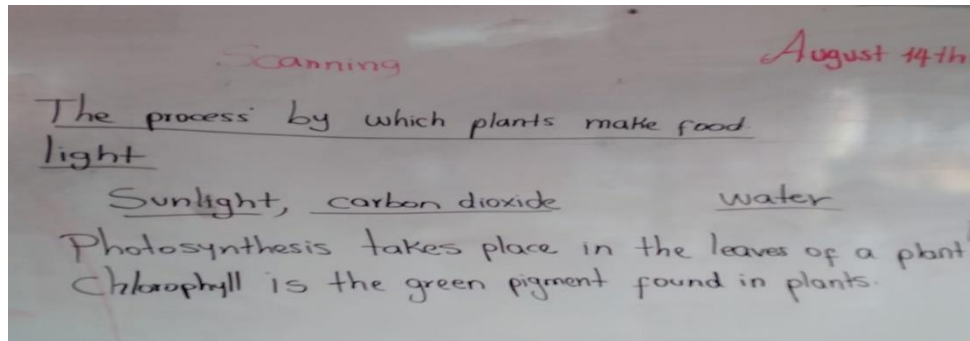 Scanning August 14th
The process by which plants make food.
light
Sunlight, carbon dioxide water
Photosynthesis takes place in the leaves of a plant
Chlorophyll is the green pigment found in plants.